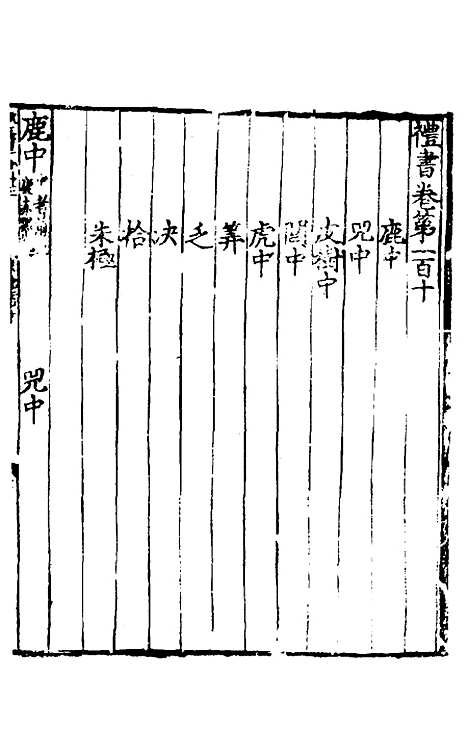 禮書卷第一百十
鹿中
兕中
皮樹中
閭中
虎中
筭
乏
決
拾
朱極
鹿中
兕中